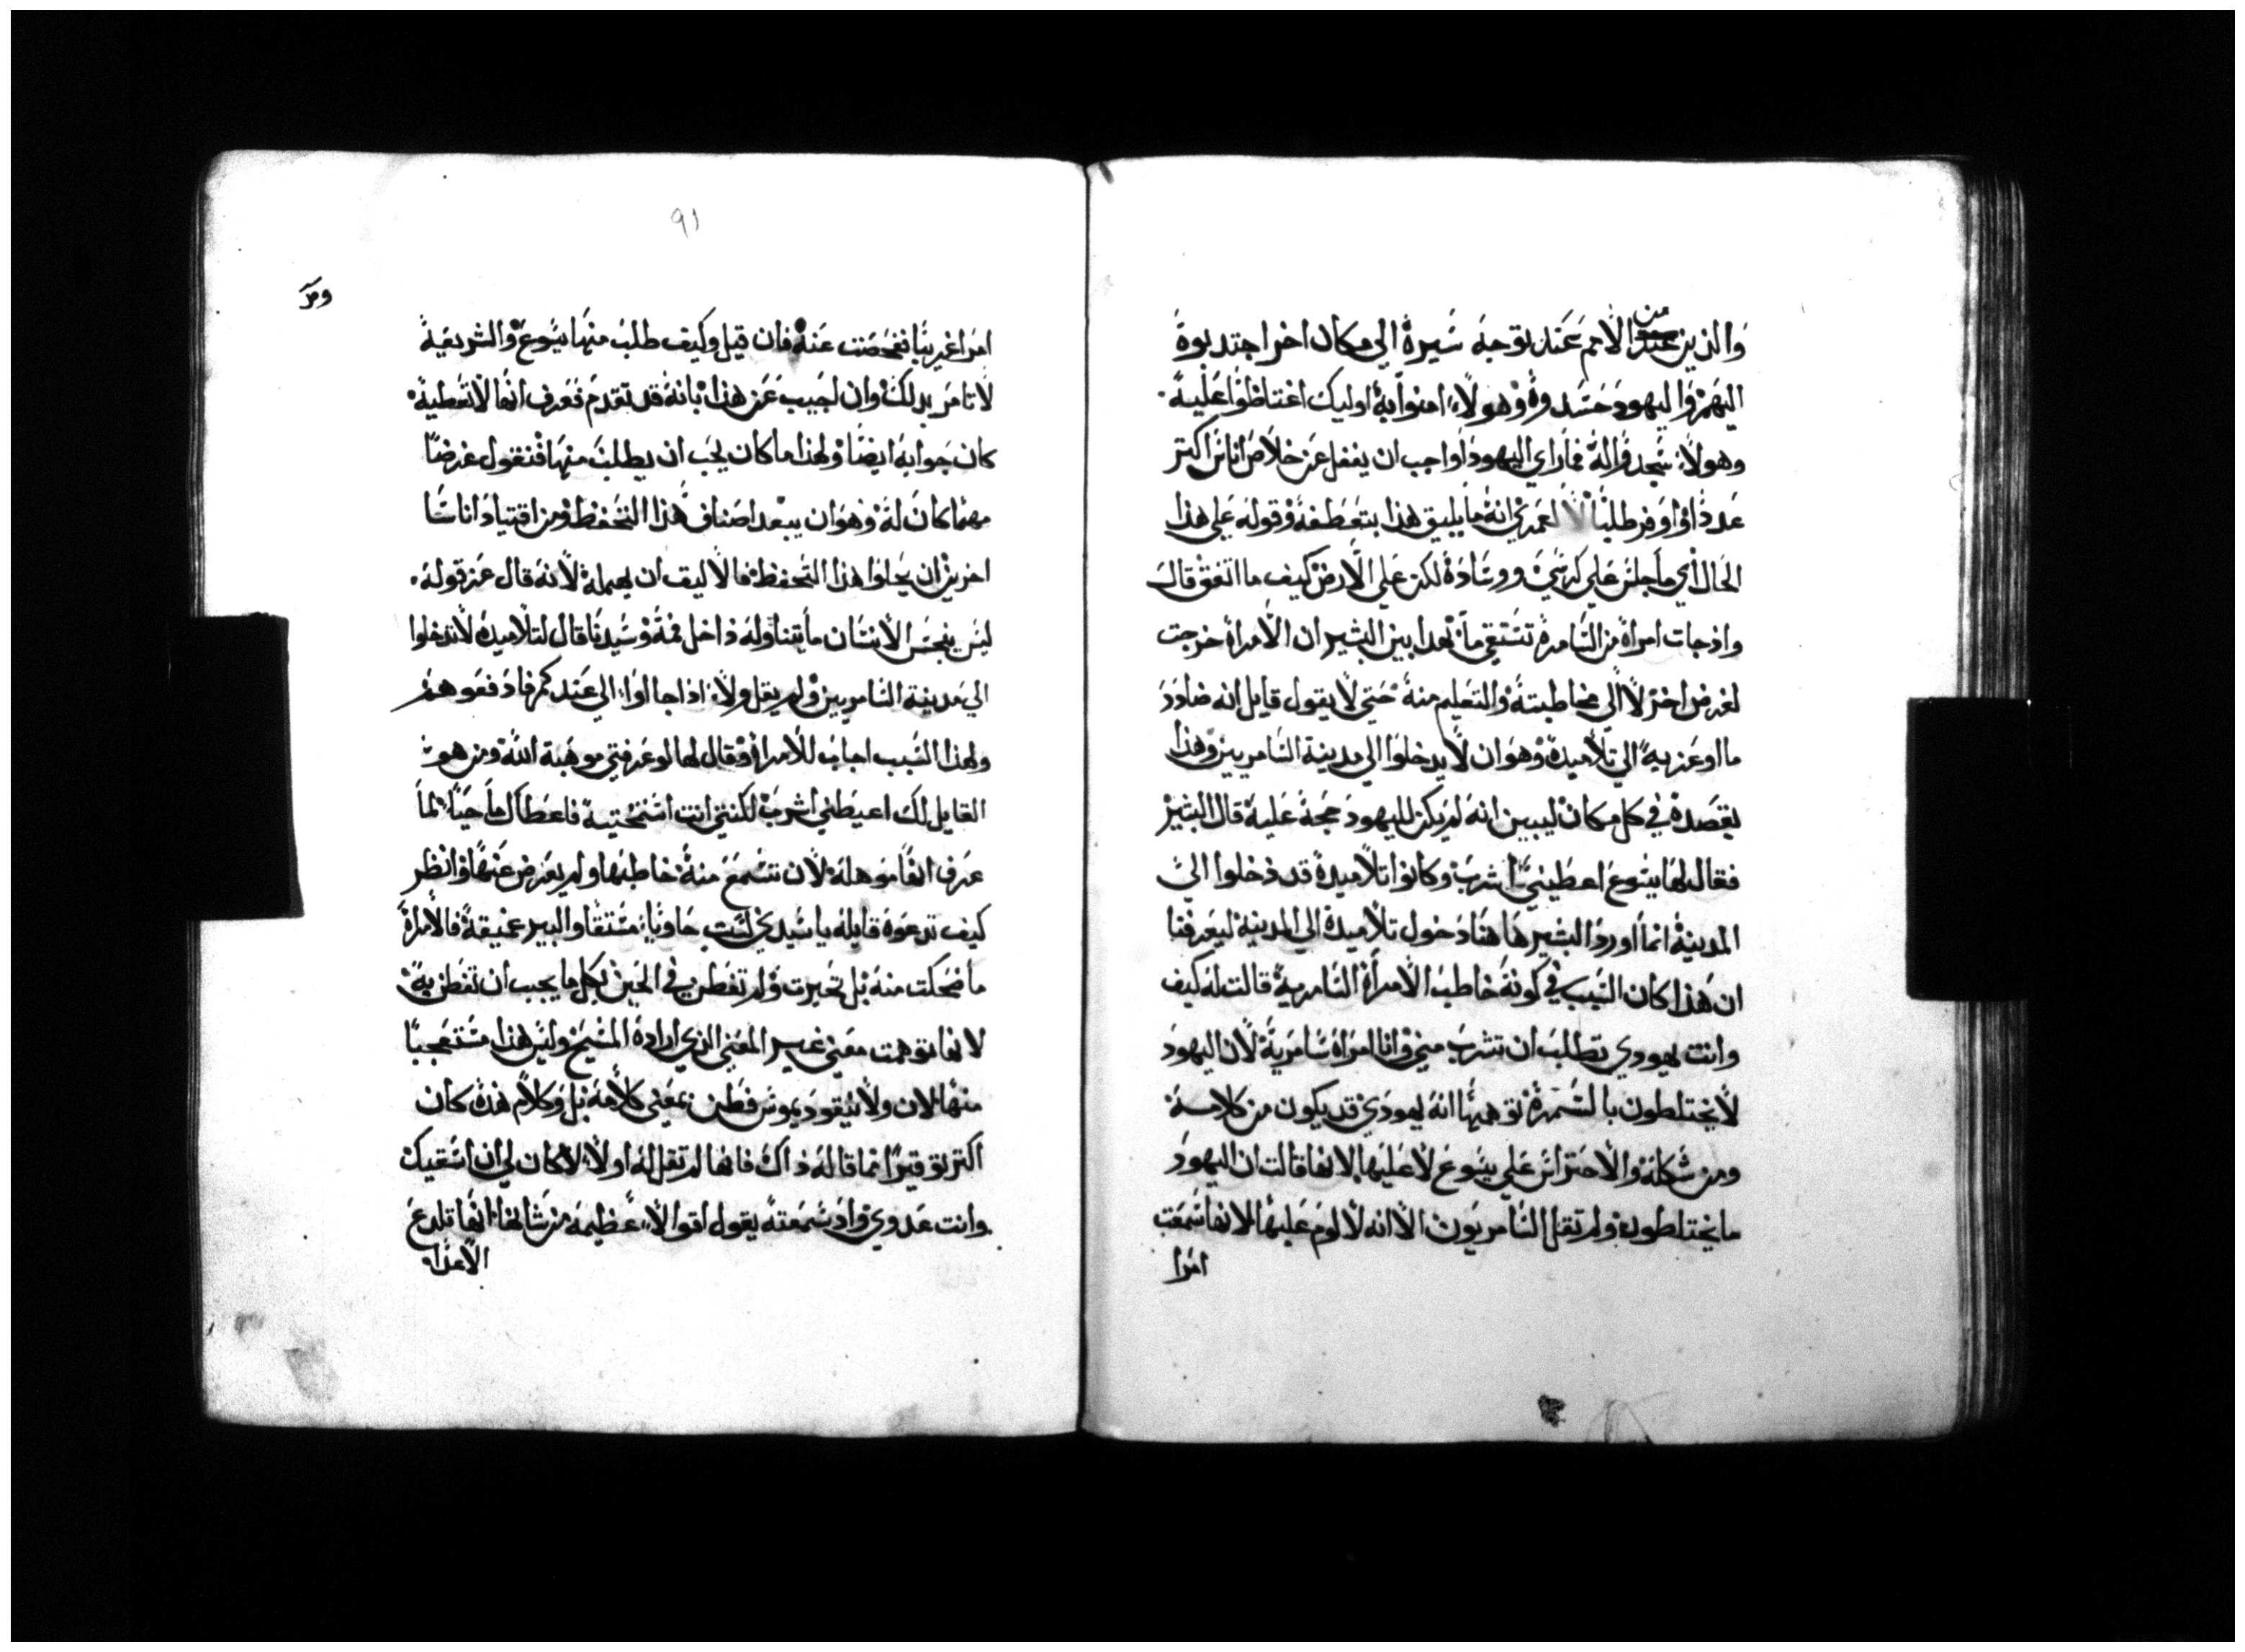 من
والذين عند الامم عند توجه سيره الي مكان اخر اجتدبوه
اليهم واليهود حسدوه وهولاء امنوا به اوليك اغتاظوا عليه
وهولاء سجدوا له فما راي اليهود اواجب ان يغفل عن خلاص اناس اكتر
عددا واوفر طلبا لا لعمري انه ما يليق هذا بتعطفه وقوله علي هذا
الحال اي ما جلس علي كرسي ووساده لكن علي الارض كيف ما اتفق قال
واذ جات امراة من السامره تستقي ما بهدا بين البشير ان الامراة خرجت
لغرض اخر لا الي مخاطبته والتعليم منه حتي لا يقول قايل انه ضادد
ما اوعز به الي تلاميده وهو ان لا يدخلوا الي مدينة السامريين وهذا
يقصده في كل مكان ليبين انه لم يكن لليهود حجة عليه قال البشير
فقال لها يسوع اعطيني اشرب وكانوا تلاميده قد دخلوا الي
المدينة انما اورد البشير هاهنا دخول تلاميده الي المدينة ليعرفنا
ان هذا كان السبب في كونه خاطب الامراة السامرية قالت له كيف
وانت يهودي تطلب ان تشرب مني وانا امراة سامرية لان اليهود
لا يختلطون بالسمرة توهمها انه يهودي قد يكون من كلامه
ومن شكله والاحتراس علي يسوع لا عليها لانها قالت ان اليهود
ما يختلطون ولم تقل السامريون الا انه لا لوم عليها لانها سمعت
امرا
٩١
ومر
امرا غريبا ففحصت عنه فان قيل وكيف طلب منها يسوع والشريعة
لا تامر بدلك وان اجيب عن هذا بانه قد تقدم فعرف انها لا تعطيه
كان جوابه ايضا ولهذا ما كان يجب ان يطلب منها فنقول غرضا
مهما كان له وهو ان يبعد اصناف هذا التحفظ ومن اقتياد اناسا
اخرين ان يحلوا هذا التحفظ فالاليف ان يهمله لانه قال عن قوله
ليس ينجس الانسان ما يتناوله داخل فمه وسيدنا قال لتلاميده لا تدخلوا
الي مدينة السامريين ولم يقل ولا اذا جااوا الي عندكم فادفعوهم
ولهذا السبب اجاب للامراة وقال لها لو عرفتي موهبة الله ومن هو
القايل لك اعيطني اشرب لكنتي انت استمحتيه فاعطاك ما حيا لما
عرف انها موهله لان تسمع منه خاطبها ولم يعرض عنها وانظر
كيف تدعوه قايله يا سيدي لست حاويا مستقا والبير عميقة فالامراة
ما ضحكت منه بل تحيرت ولم تفطن في الحين بكل ما يجب ان تفطن به
لانها توهمت معني غير المعني الذي اراده المسيح وليس هذا مستعجبا
منها لان ولا نيقوديموس فطن بمعني كلامه بل وكلام هده كان
اكتر توقيرا مما قاله ذاك فانها لم تقل له اولا لا كان لي ان اسقيك
وانت عدوي واد سمعته يقول اقوالا عظيمة من شانها انها تلدع
الاعدا